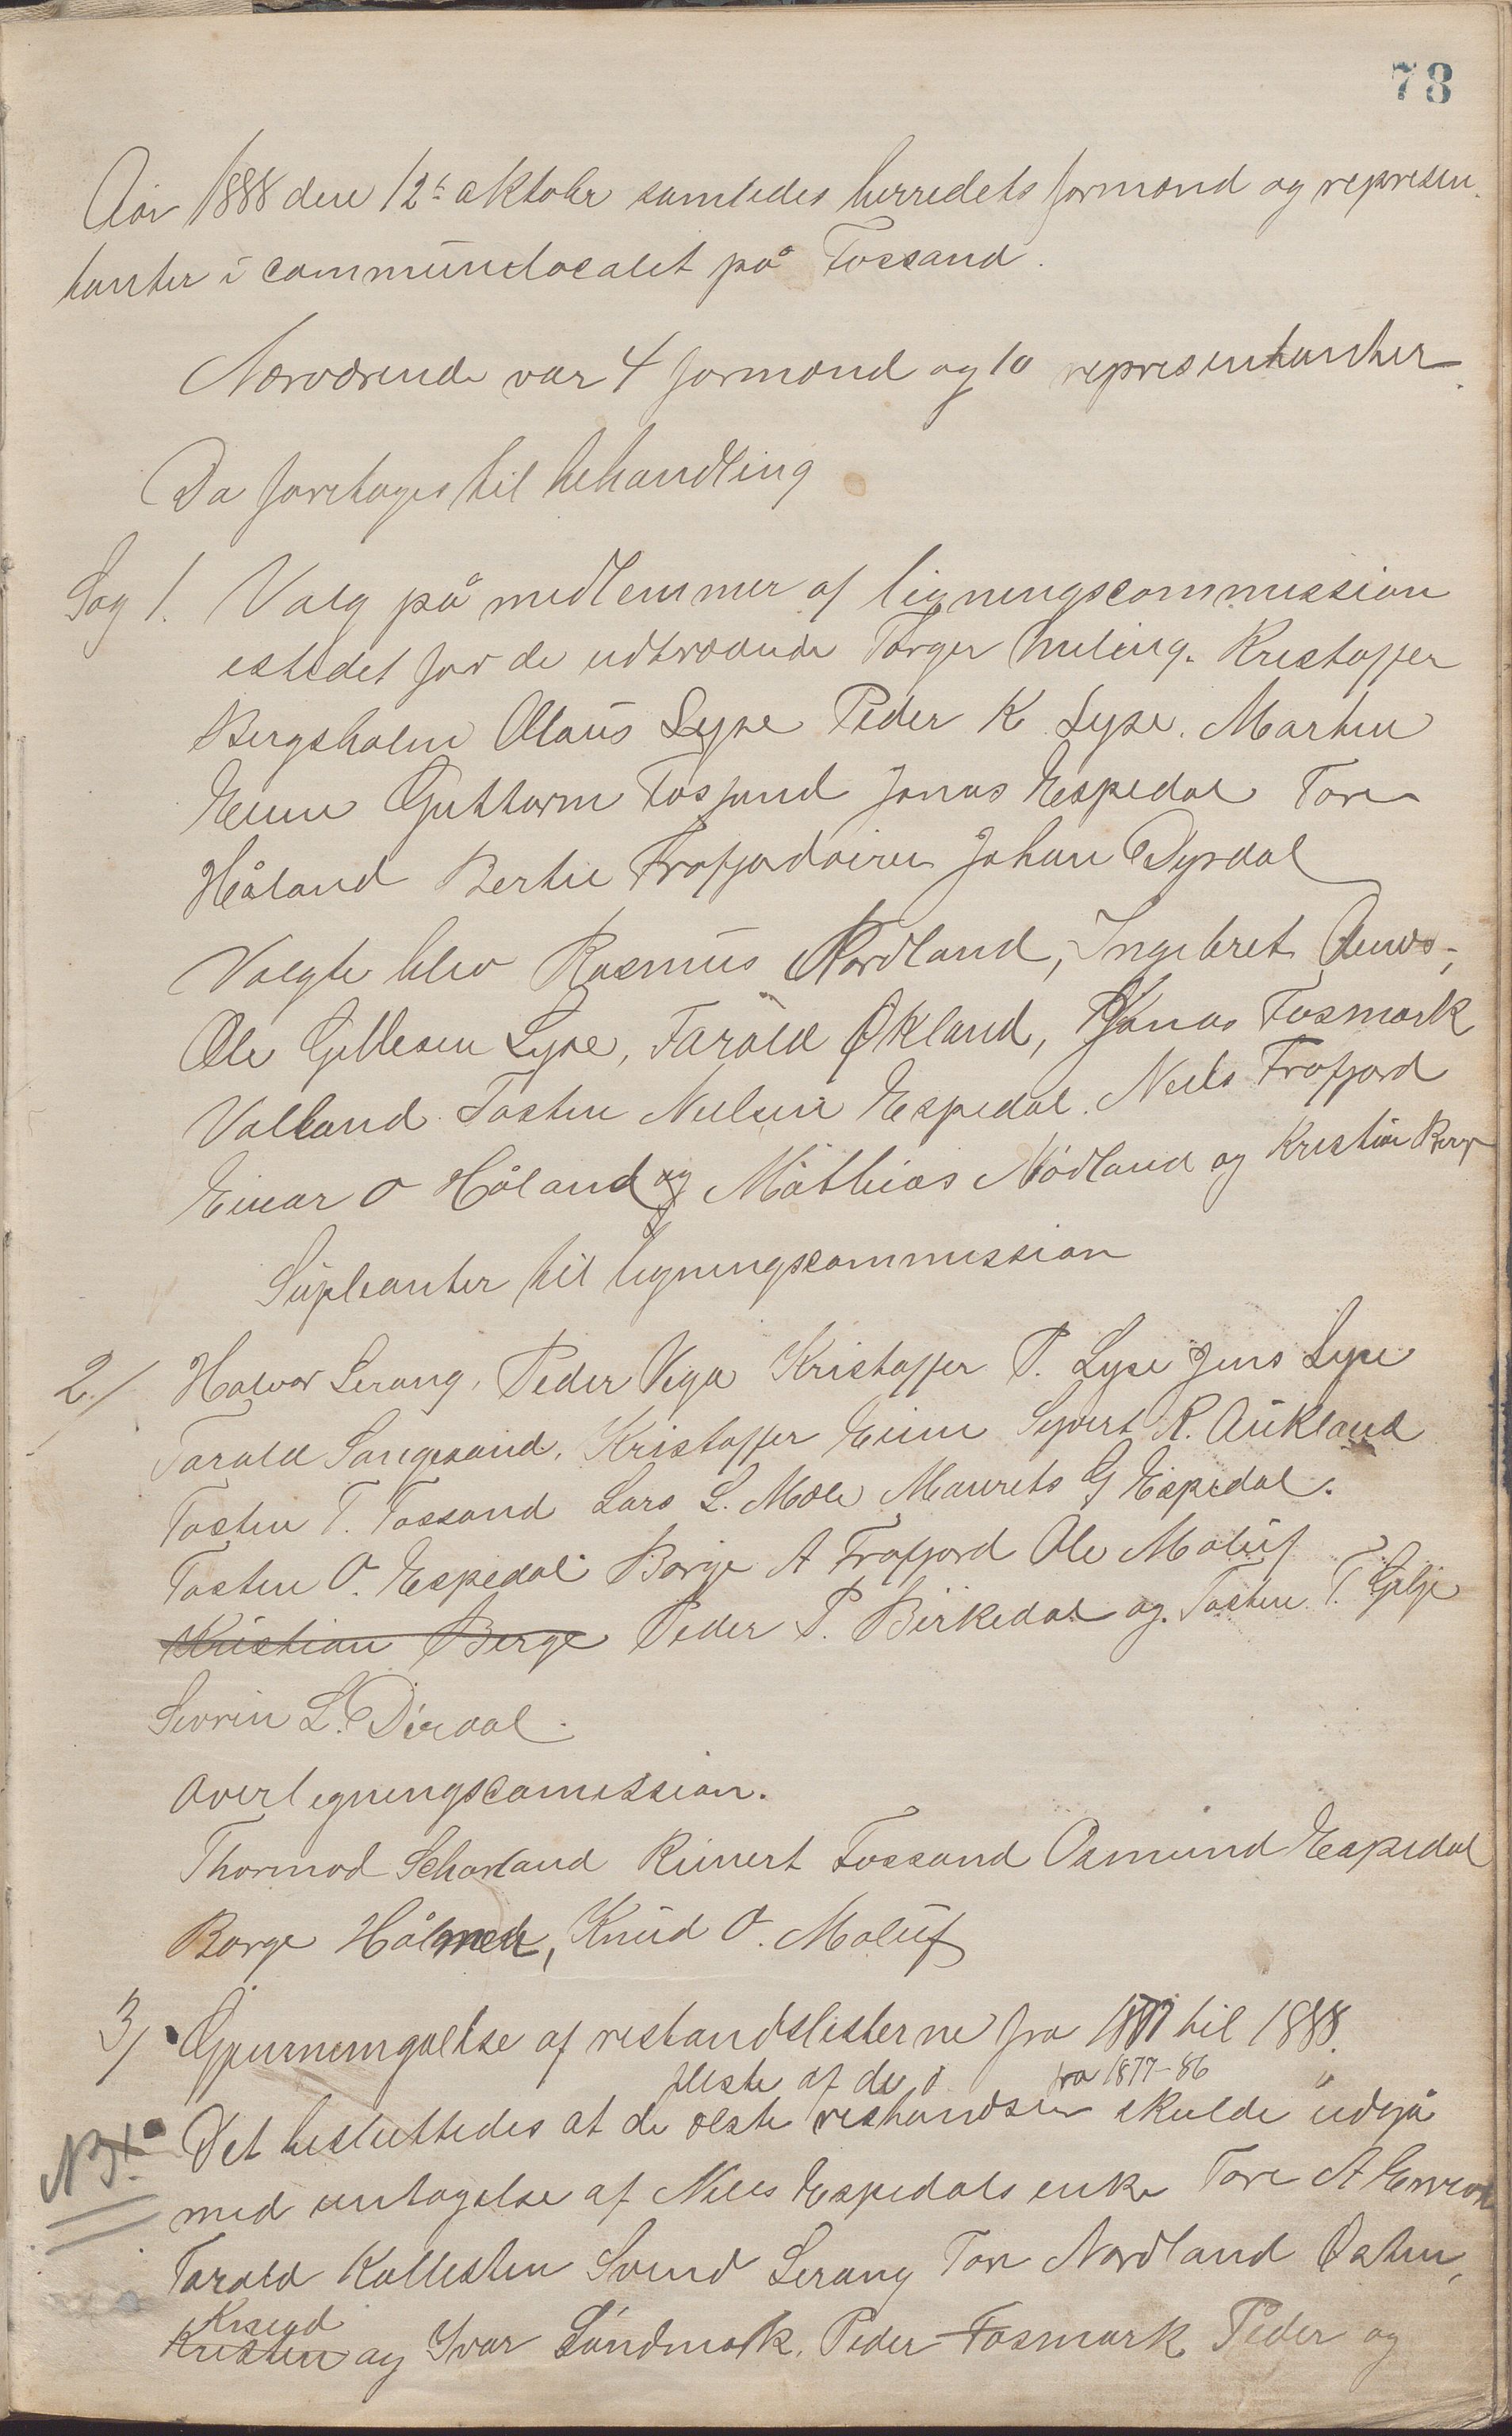 78
Aar 1888 den 12te oktobr samledes herredets formænd og represen
tanter i communelocalet på Fossand.
Nærværende var 4 formænd og 10 representanter.
Da foretoges til behandling
Sag 1. Valg på medlemmer af ligningscommission
istedet for de udtrædende Torger Meling. Kristoffer
Bergsholm Olaus Lyse Peder K Lyse. Marten
Eiene Guttorm Fossand Jonas Espedal Tore
Håland Bertil Frafjord Johan Dyrdal
Valgte blev Rasmus Nordland, Ingebret
Ole Gittlesen Lyse, Tarald Økland, Jonas Fosmark
Valland Tosten Nielsen Espedal. Niels Frafjord
Einar O Håland og Mathias Nødland og Kristian Berge
Supleanter til ligningscommission
2/ Halvor Lerang, Peder Viga Kristoffer P. Lyse Jens Lyse
Tarald Sangesand, Kristoffer Eiene Syvert R. Aukland
Tosten T. Fossand Lars L. Mæle Maurits G Espedal.
Tosten O. Espedal Børge A Frafjord Ole Maluf
Kristian Berge Peder P. Birkedal og Tosten T. Gilje
Sevrin L. Dirdal.
Overligningscomission.
Thormod Scharland Reinert Fossand Osmund Espedal
Børge Hålmen, Knud O. Maluf
3/ Gjennemgåelse af restandslisterne fra 1877 til 1888.
fleste af de fra 1877-86
NB Det besluttedes at de ælste restandser skulde udgå
med untagelse af Niels Espedals enke Tore A
Tarald Kallesten Svend Lerang Tore Nordland Østen,
Knud
Kristen og Ivar Landmark. Peder Fosmark Peder og